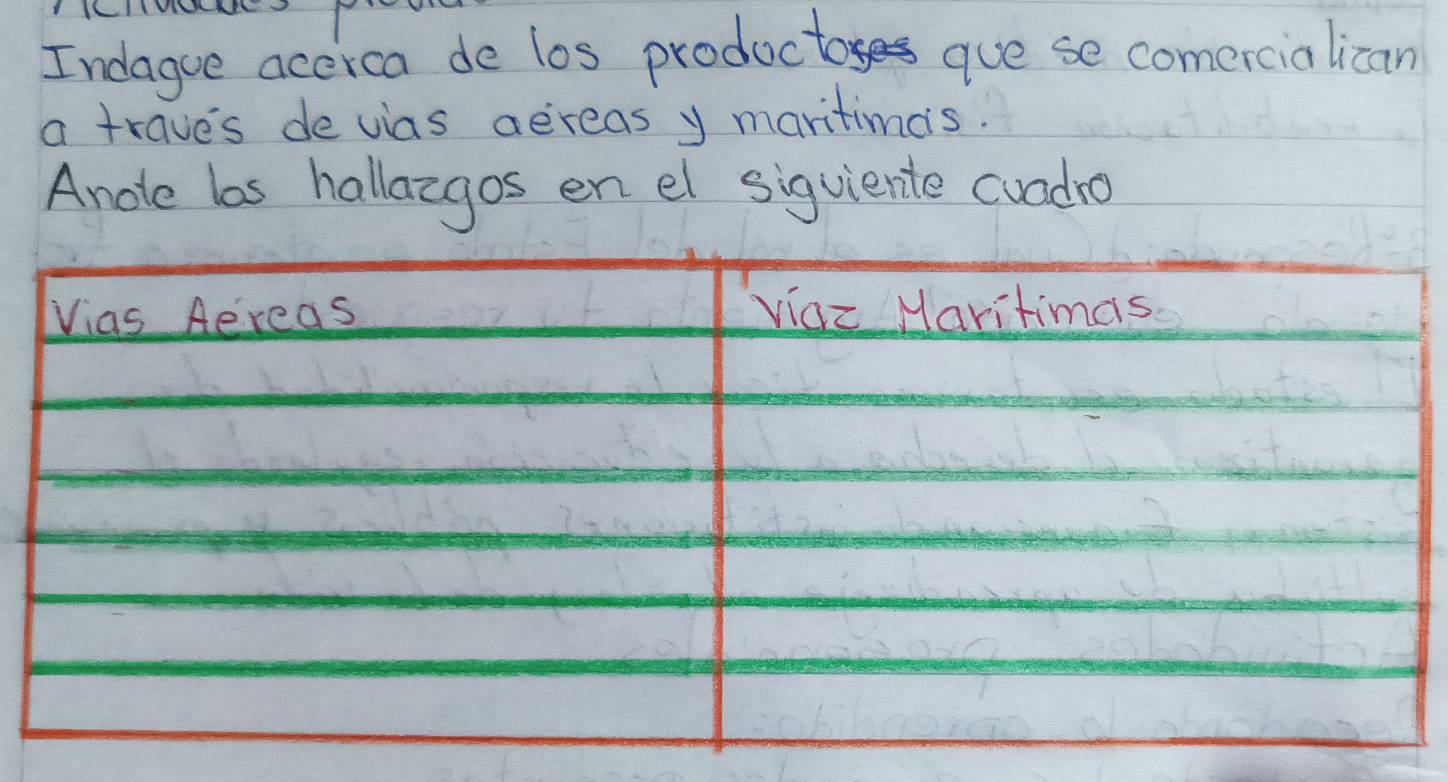 Indague acerca de los productos que se comercializan
a través de vias aéreas y marítimas.
Anote los hallazgos en el siguiente cuadro
Vias Aéreas
víaz Marítimas